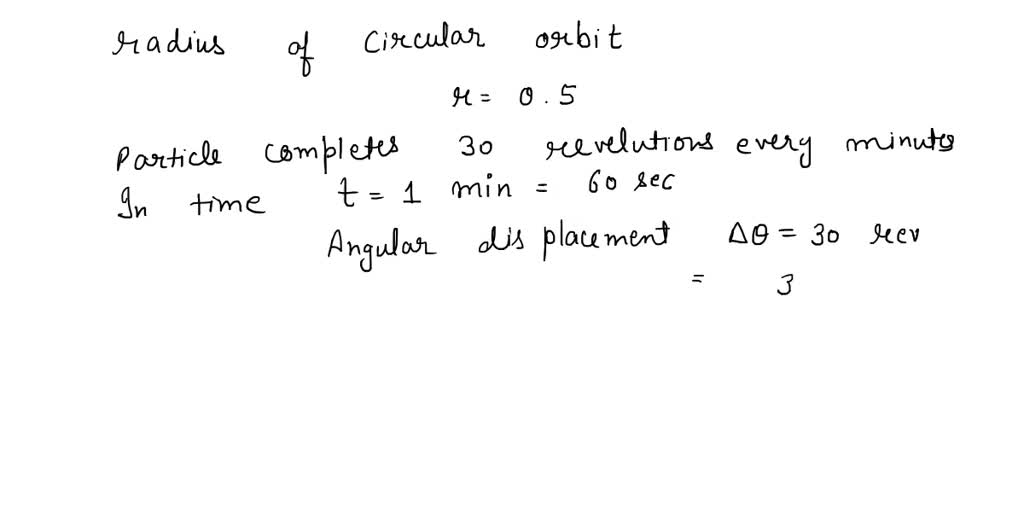 radius of circular orbit
r = 0.5
Particle completes 30 revelutions every minute
In time t = 1 min = 60 sec
Angular displacement Δθ = 30 rev
= 3